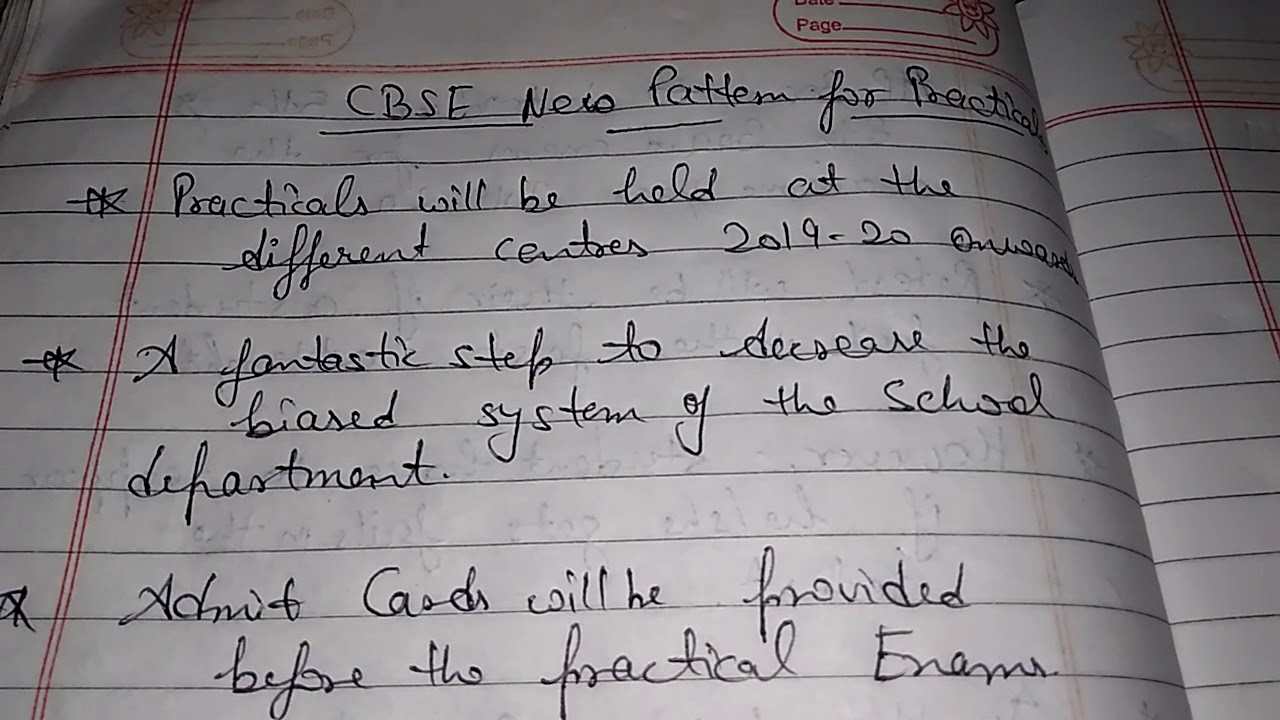 Date
Page
CBSE New Pattern for Practicals
* Practicals will be held at the
different centres 2019-20 onwards
* A fantastic step to decrease the
biased system of the School
department.
* Admit Cards will be provided
before the practical Exams.